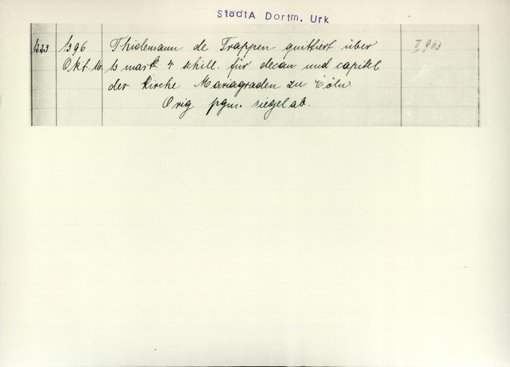 StadtA Dortm. Urk
1396 Thidemann de Trappen quittiert über I, 903
Okt. 10. 13 mark 4 schill. für decan und capitel
der Kirche Mariagraden zu Cöln
Orig. pgm. siegel ab.